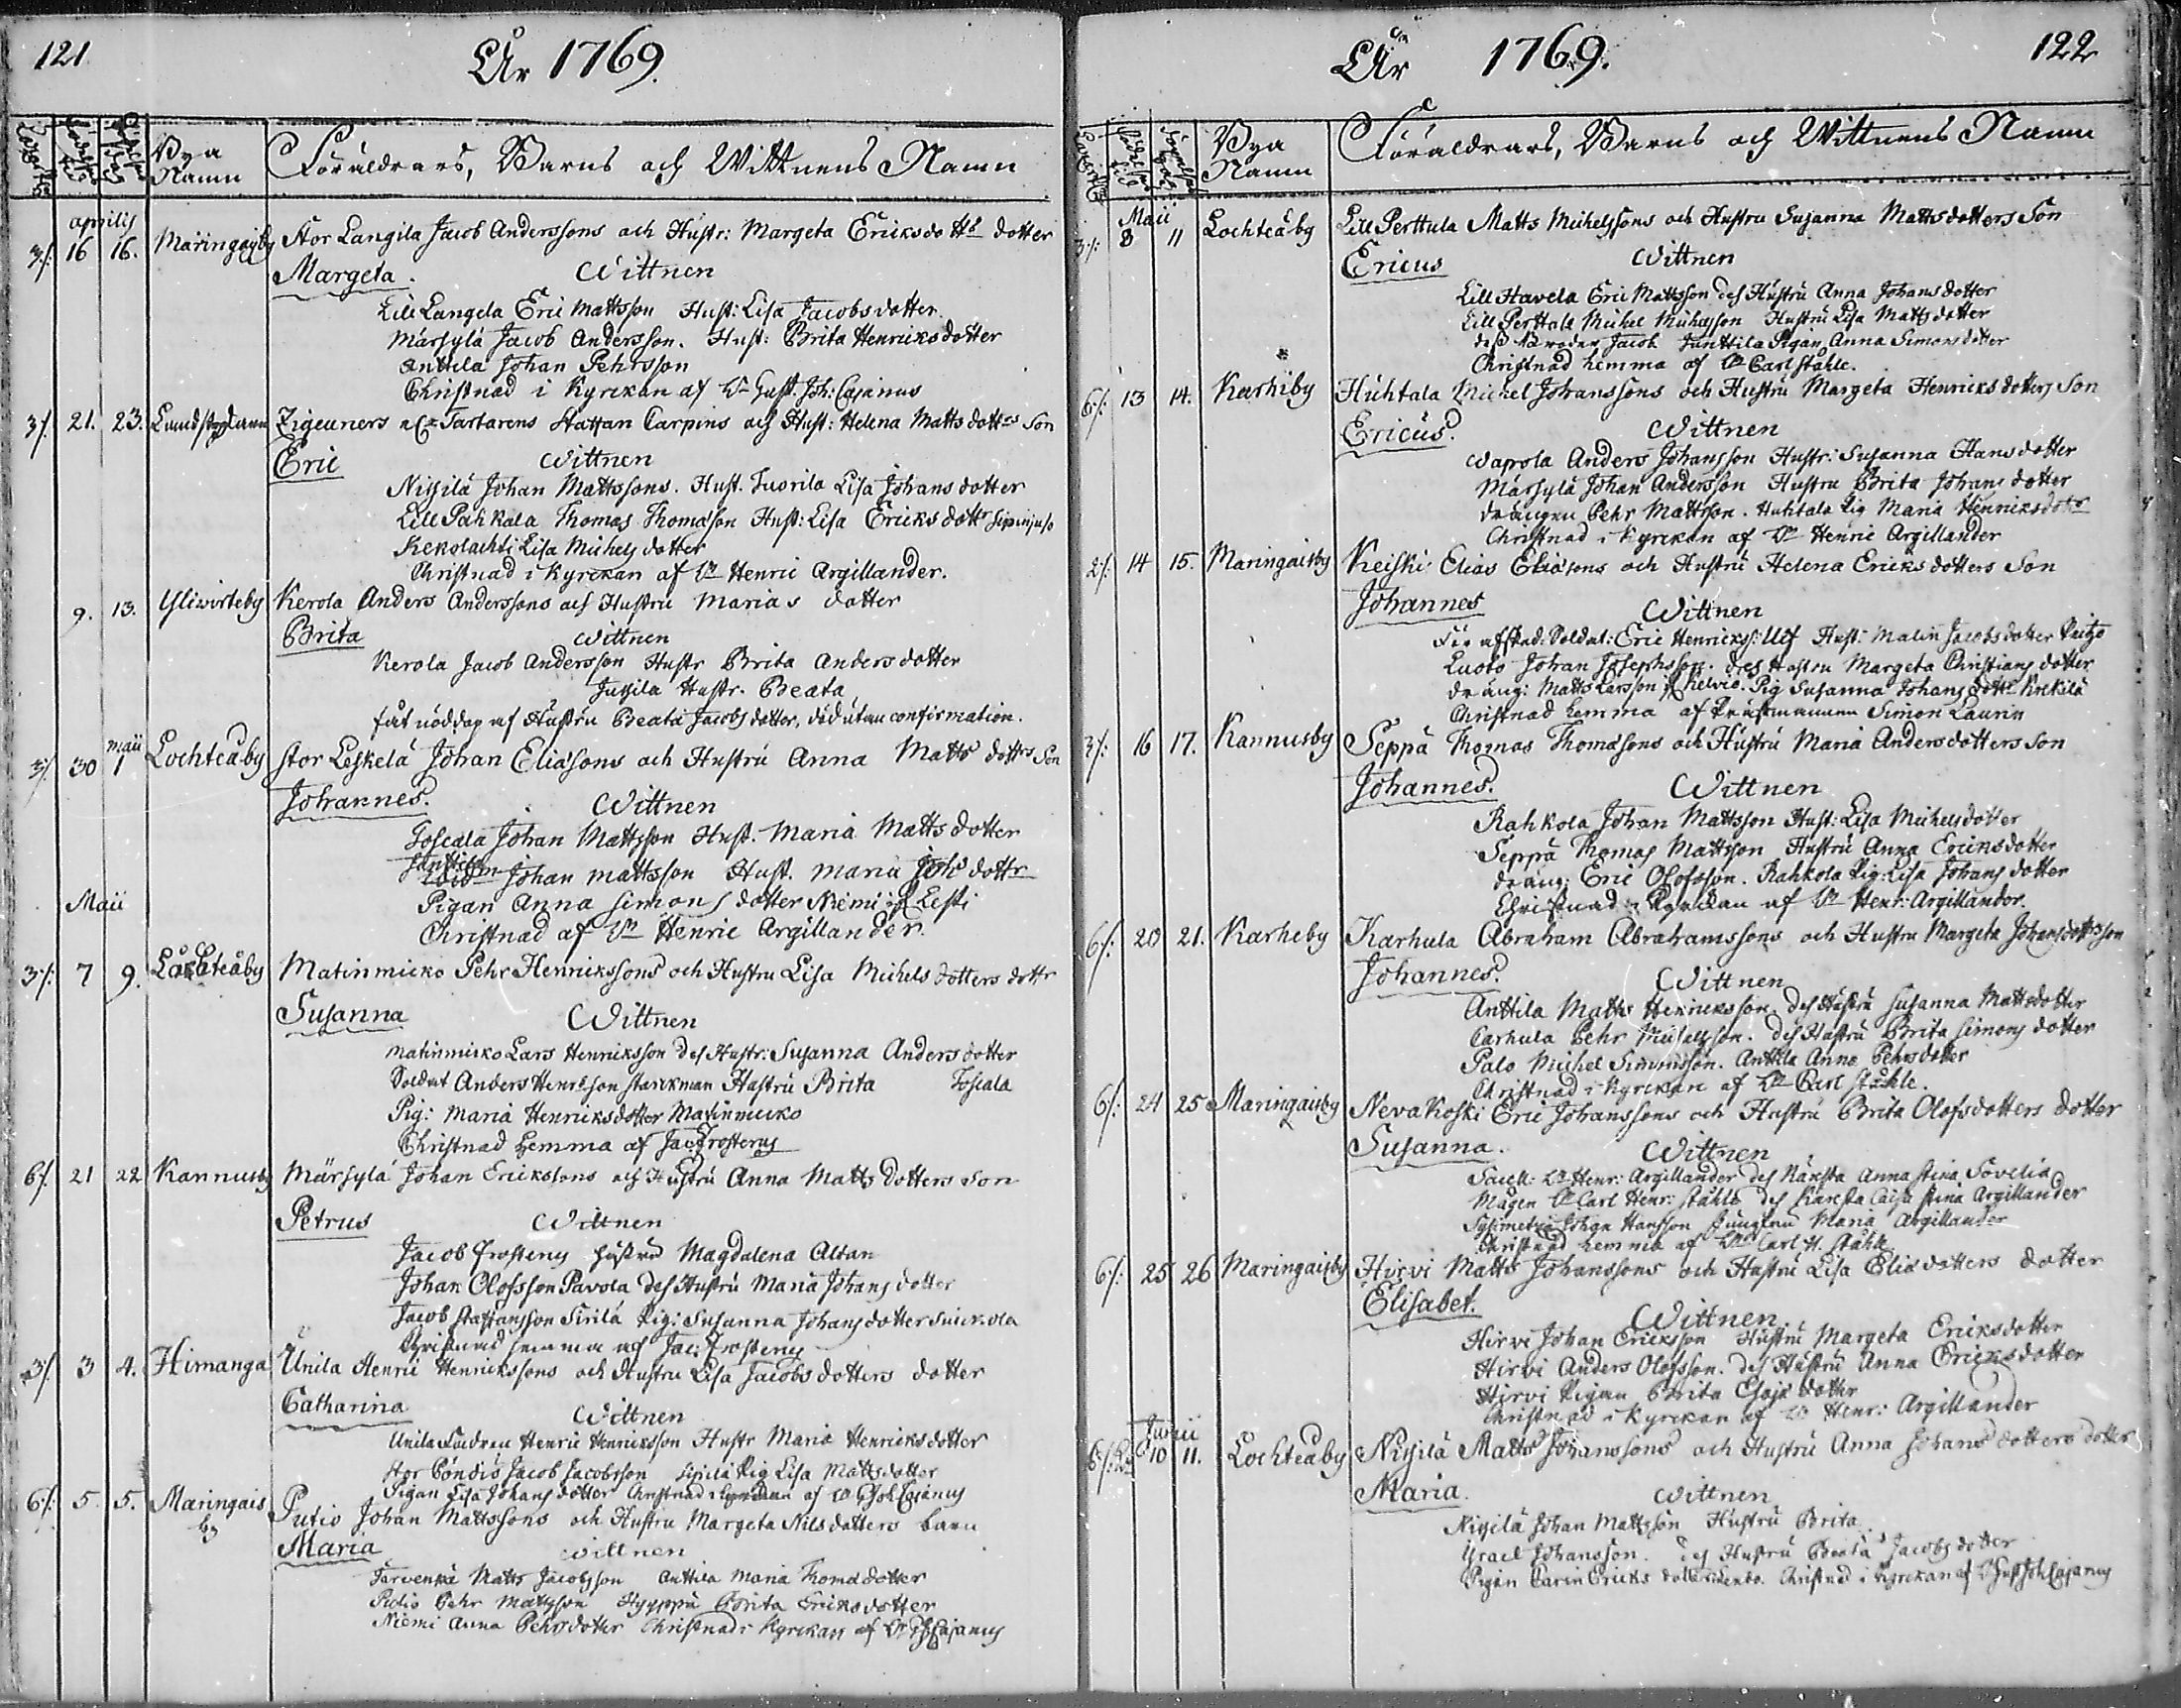 121
År 1769.
Bya Namn
Föräldrars, Barns och Wittnens Namn
aprilis
3/. 16 16. Maringaisby Stor Langila Jacob Anderssons och Hustr: Margeta Ericksdottrs dotter
Margeta. Wittnen
Lill Langela Eric Mattsson Hust: Lisa Jacobsdotter.
Märsylä Jacob Andersson. Hust: Brita Henricksdotter
Anttila Johan Pehrsson
Christnad i Kyrckan af Vn Gust: Joh: Cajanus
3/. 21. 23. Zigeuners Tartarens Staffan Carpins och Hust: Helena Matts dottrs Son
Eric Wittnen
Nisilä Johan Mattssons. Hust. Lisa Johans dotter
Lill Pahkala Thomas Thomasson Hust: Lisa Ericks dottr
Kekolachti Lisa Michels dotter
Christnad i Kyrckan af Vn Henric Argillander.
9. 13. Yliwirteby Kerola Anders Anderssons och Hustru Marias dotter
Brita Wittnen
Kerola Jacob Andersson Hustr Brita Anders dotter
Hustr. Beata
fåt nöddop af Hustru Beata Jacobs dotter, död utan confirmation.
maii
3/. 30 1 Lochteåby Stor Leskelä Johan Eliasons och Hustru Anna Matts dottrs Son
Johannes. Wittnen
Toscala Johan Mattsson Hust. Maria Matts dotter
Johan Mattsson Hust. Maria Joh dottr
Pigan Anna Simons dotter Niemi
Christnad af Vn Henric Argillander.
Maii
3/. 7 9. Lochteåby Matinmicko Pehr Henrickssons och Hustru Lisa Michels dotters dottr
Susanna Wittnen
Matinmicko Lars Henricksson des Hustr: Susanna Anders dotter
Soldat Anders Henrcson Starckman Hustru Brita Toscala
Pig: Maria Henricksdotter Matinmicko
Christnad hemma af Jac: Frosterus
6/. 21 22 Kannusby Märsylä Johan Ericksons och Hustru Anna Matts dotters Son
Petrus Wittnen
Jacob Frosterus hustru Magdalena Altan
Johan Olofsson Pavola des Hustru Maria Johans dotter
Jacob Staffansson Sirilä Pig: Susanna Johans dotter
Christnad hemma af Jac: Frosterus
3/. 3 4. Himanga Unila Henric Henrickssons och Hustru Lisa Jacobs dotters dotter
Catharina Wittnen
Unila Henric Henricksson Hustr Maria Henricksdotter
Stor Pöndiö Jacob Jacobsson Pig Lisa Mattsdotter
Pigan Lisa Johans dotter Christnad i Kyrckan af Vn G Joh Cajanus
6/. 5 5. Maringaisby Putio Johan Mattssons och Hustru Margeta Nils dotters barn
Maria Wittnen
Tarvenpä Matts Jacobsson Anttila Maria Thomæ dotter
Pehr Mattsson Hyyppä Brita Ericksdotter
Niemi Anna Pehrsdotter Christnad i Kyrckan af Vn GJ Cajanus
År 1769. 122
Bya Namn
Föräldrars, Barns och Wittnens Namn
Maii
3/. 8 11 Lochteåby Lill Perttula Matts Michelssons och Hustru Susanna Mattsdotters Son
Ericus Wittnen
Lill Havela Eric Mattsson des Hustru Anna Johans dotter
Lill Perttula Michel Michelsson Hustru Lisa Matts dotter
des Broder Jacob Pigan Anna Simonsdotter
Christnad hemma af Vn Carl Ståhle.
6/. 13 14. Karhiby Huhtala Michel Johanssons och Hustru Margeta Henricks dotters Son
Ericus. Wittnen
Waprola Anders Johansson Hustr: Susanna Hans dotter
Märsylä Johan Andersson Hustru Brita Johans dotter
drängen Pehr Mattsson. Huhtala Pig Maria Henricksdotr
Christnad i Kyrckan af Vn Henric Argillander
2/. 14 15. Maringaisby Keiski Elias Eliasons och Hustru Helena Ericksdotters Son
Johannes Wittnen
afskad: Soldat: Eric Henricks: Ulf Hust: Malin Jacobsdotter
Luoto Johan Josephsson. des Hustru Margeta Christians dotter
dräng: Matts Larsson Pig Susanna Johans dottr Kokilä
Christnad hemma af Simon Laurin
3/. 16 17. Kannusby Seppä Thomas Thomasons och Hustru Maria Andersdotters Son
Johannes. Wittnen
Rahkola Johan Mattsson Hust: Lisa Michelsdotter
Seppä Thomas Mattsson Hustru Anna Ericksdotter
dräng: Eric Olofsson. Rahkola Pig: Lisa Johans dotter
Christnad i Kyrckan af Vn Henr: Argillander.
6/. 20 21. Karheby Karhula Abraham Abrahamssons och Hustru Margeta Johansdottrs son
Johannes. Wittnen
Anttila Matts Henricksson, des Hustru Susanna Mattsdotter
Carhula Pehr Michelsson. des Hustru Brita Simons dotter
Palo Michel Simonsson. Anttila Anna Pehrsdotter
Christnad i Kyrckan af Vn Carl Ståhle.
6/. 24 25 Maringaisby Nevakoski Eric Johanssons och Hustru Brita Olofsdotters dotter
Susanna. Wittnen
Sacell: Vn Henr: Argillander des Kärsta Anna Stina Tovelia
Mågen Vn Carl Henr: Ståhle des Kärsta Caisa Stina Argillander
Johan Hansson Jungfru Maria Argillander
Christnad hemma af Vn Carl H. Ståhle
6/. 25 26 Maringaisby Hirvi Matts Johanssons och Hustru Lisa Elias dotters dotter
Elisabet. Wittnen
Hirvi Johan Ericksson Hustru Margeta Ericksdotter
Hirvi Anders Olofsson. des Hustru Anna Ericksdotter
Hirvi Pigan Brita Esajæ dotter
Christnad i Kyrckan af Vn Henr: Argillander
Junii
6/. 10 11. Lochteåby Nisilä Matts Johanssons och Hustru Anna Johans dotters dotter
Maria. Wittnen
Nisilä Johan Mattsson Hustru Brita
Israel Johansson. des Hustru Beata Jacobs dotter
Pigan Carin Ericks dotter Christnad i Kyrckan af Vn Gust Joh Cajanus